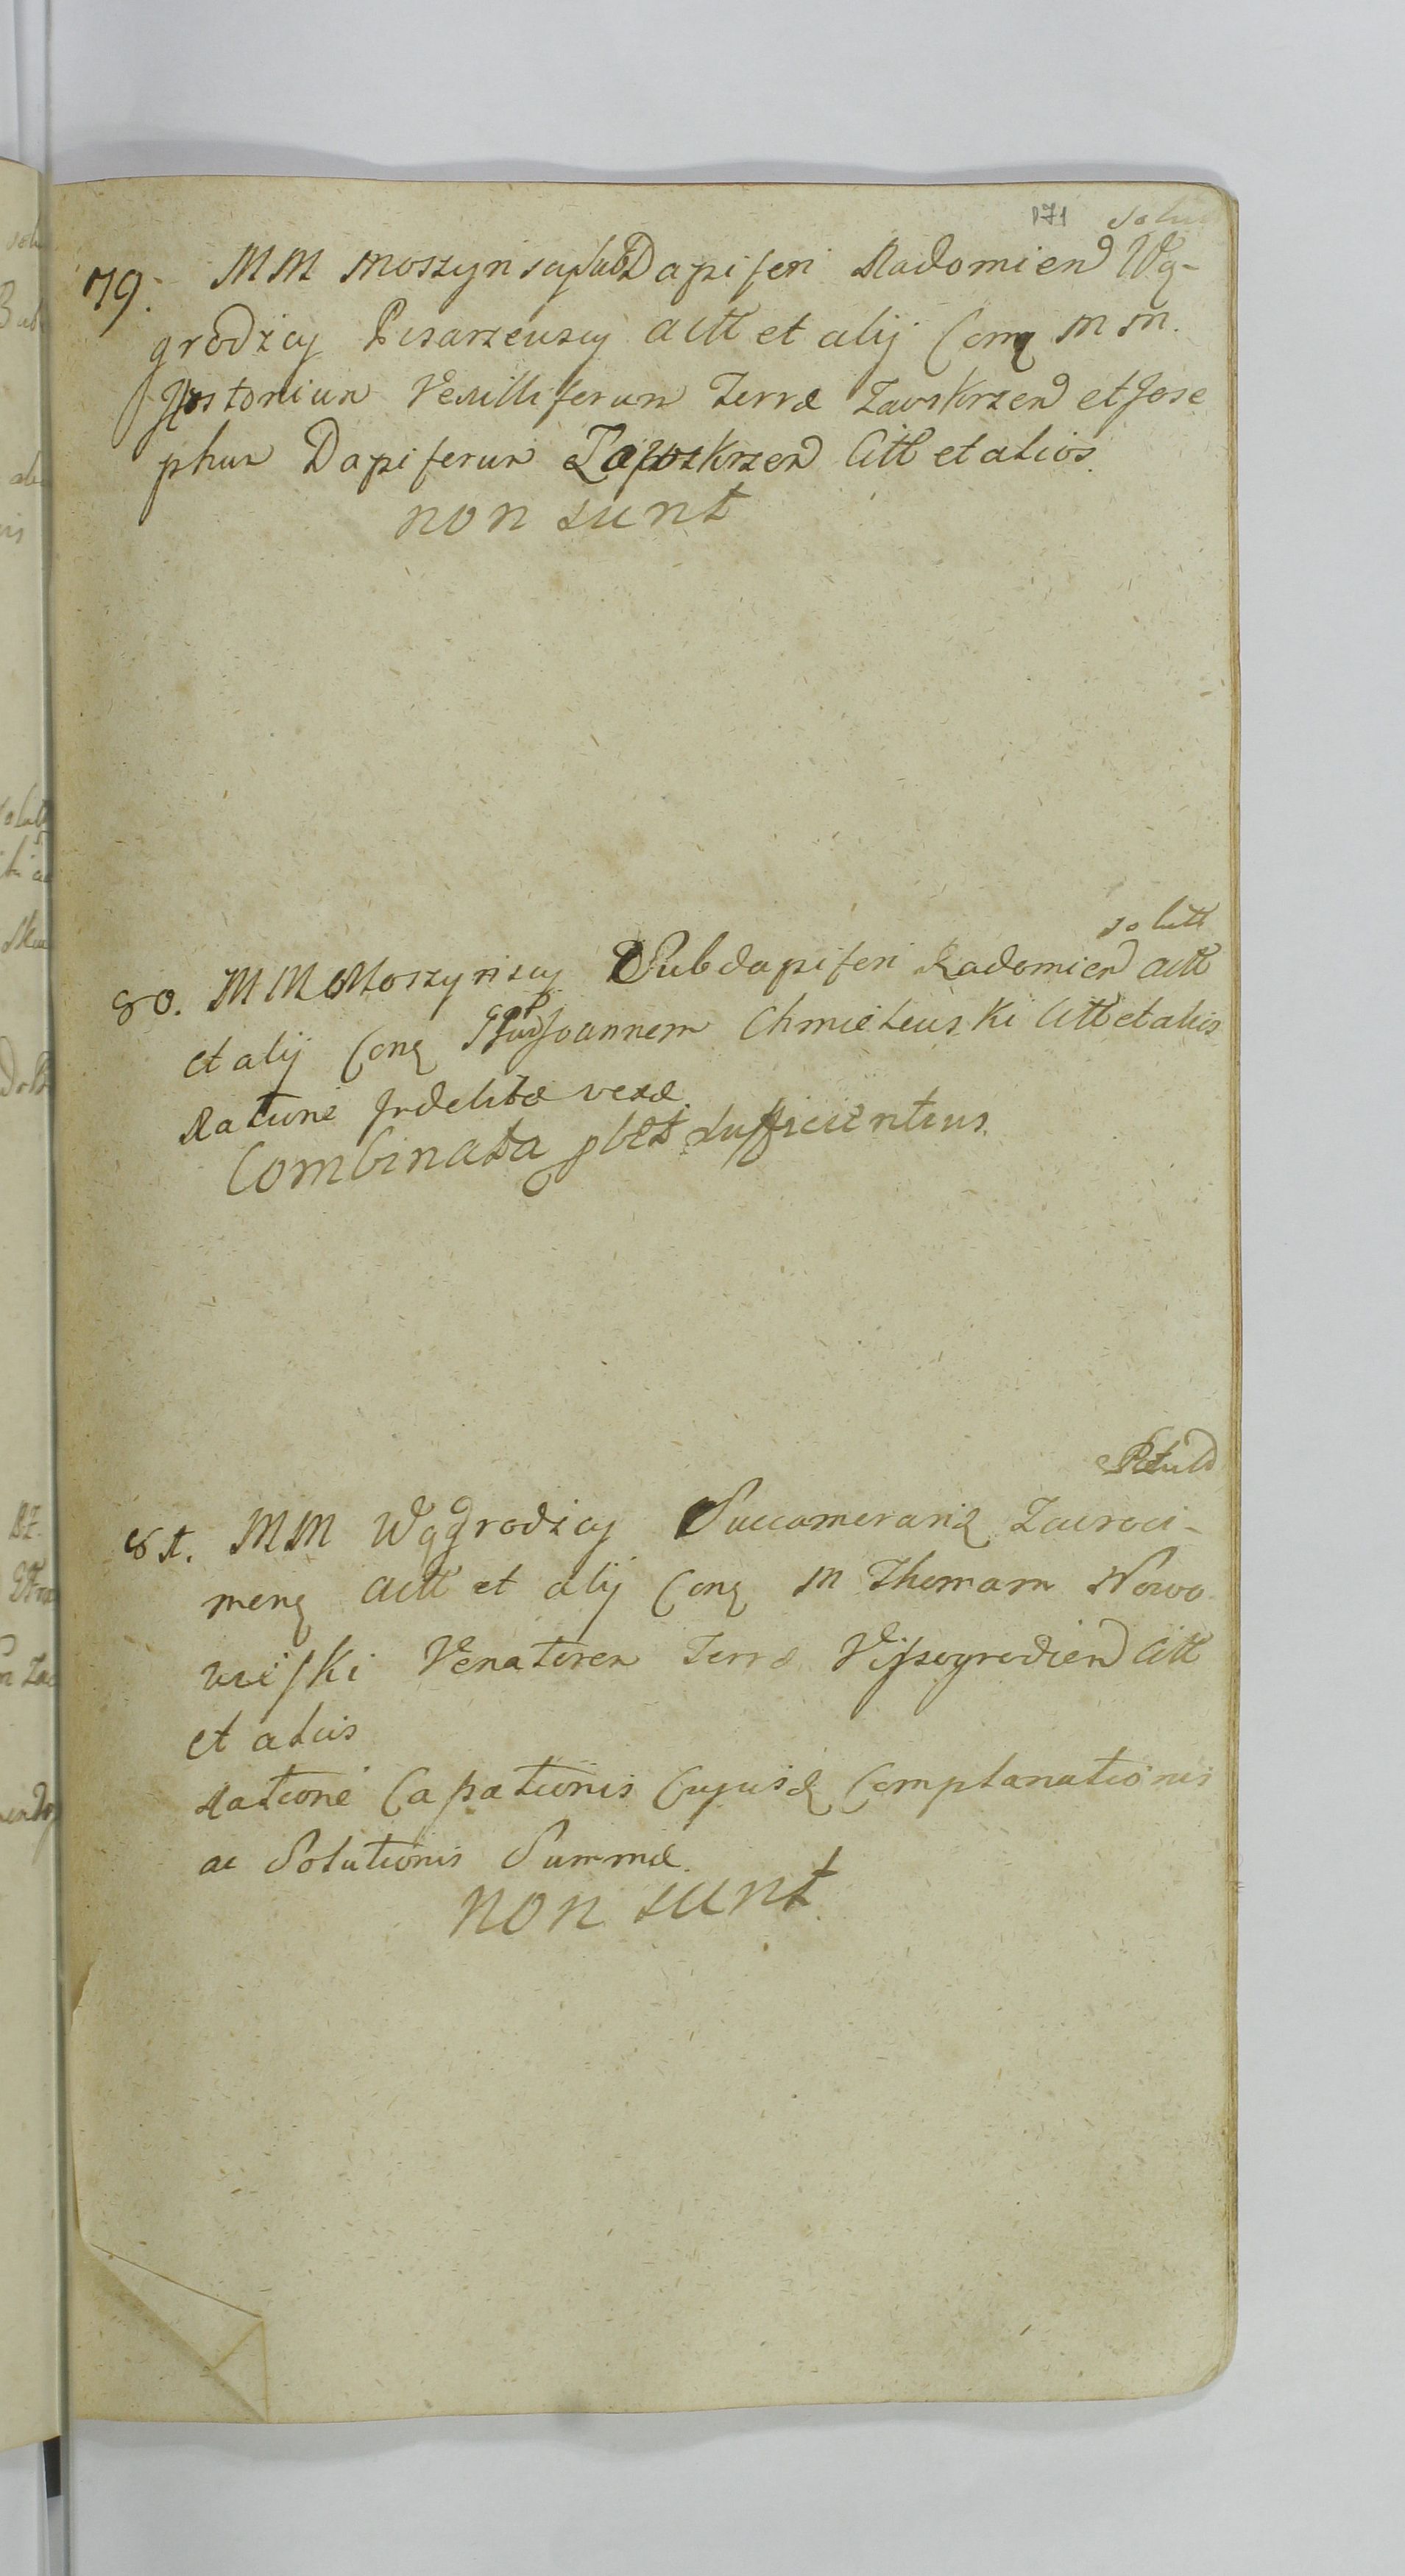 171 solut
79. MM Moszynscy SubDapiferi Radomien Wą-
grodzcy Pisarzewscy Actt et alij Conq MM.
Vexilliferum Terræ Zawskrzen et Jose
phum Dapiferum Zawskrzen Citt et alios.
non sunt
solutt
80. MM Moszynscy Subdapiferi Radomien Actt
et alij Conq Joannem Chmielewski Citt et alios
Ratione Indebitæ vexæ.
Combinata sufficientius.
81. MM Wągrodzcy Succamerarii Zacroci-
menq Actt et alij Conq M Thomam Nowo
wieſki Venatorem Terræ Viſsogrodien Citt
et alios
Ratione Capationis Cujusd Complanationis
ac Solutionis Summæ.
non sunt.